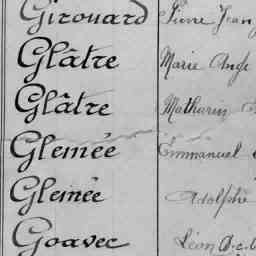 Girouard Pierre Jean
Glâtre Marie Ange
Glâtre Mathurin
Glemée Emmanuel
Glemée Adolphe
Goavec Léon